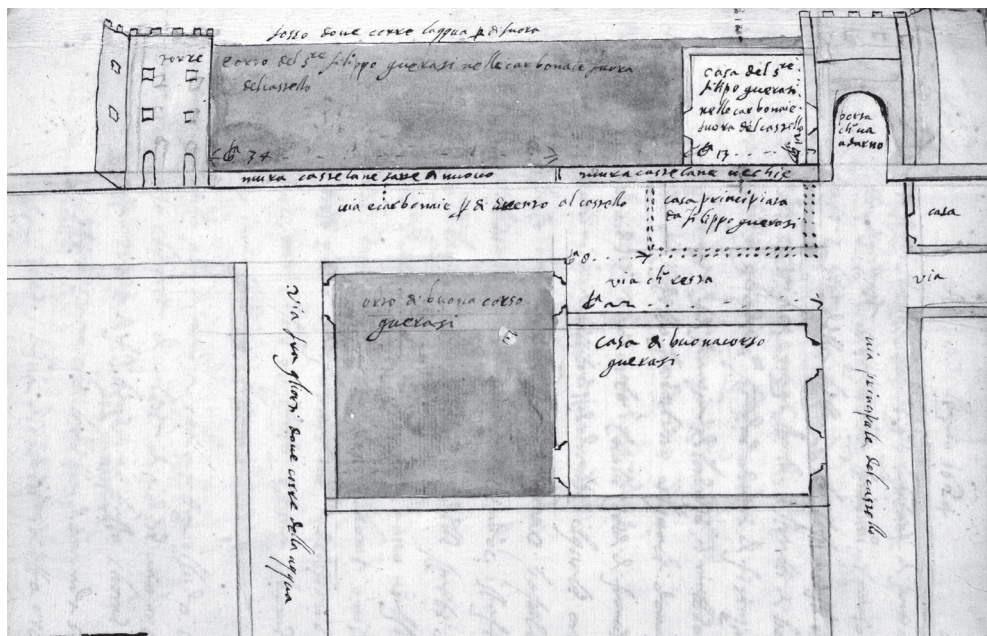 fosso doue corre laqqua di fuora
torre
orto del s.re filippo guerasi nelle carbonaie fuora
del cassello
casa del s.re
filipo guerasi
nelle carbonaie
fuora del cassello
porta
ch ua
a darno
74
17
mura casselane fare a nuouo
mura casselane uechie
uia e carbonaie di drenzo al cassello
casa principiata
da filippo guerasi
casa
8
uia ch ressa
uia
orto di buona corso
guerasi
casa di buonacorso
guerasi
Via fra gliorzi doue corre della aqqua
uia principale del cassello